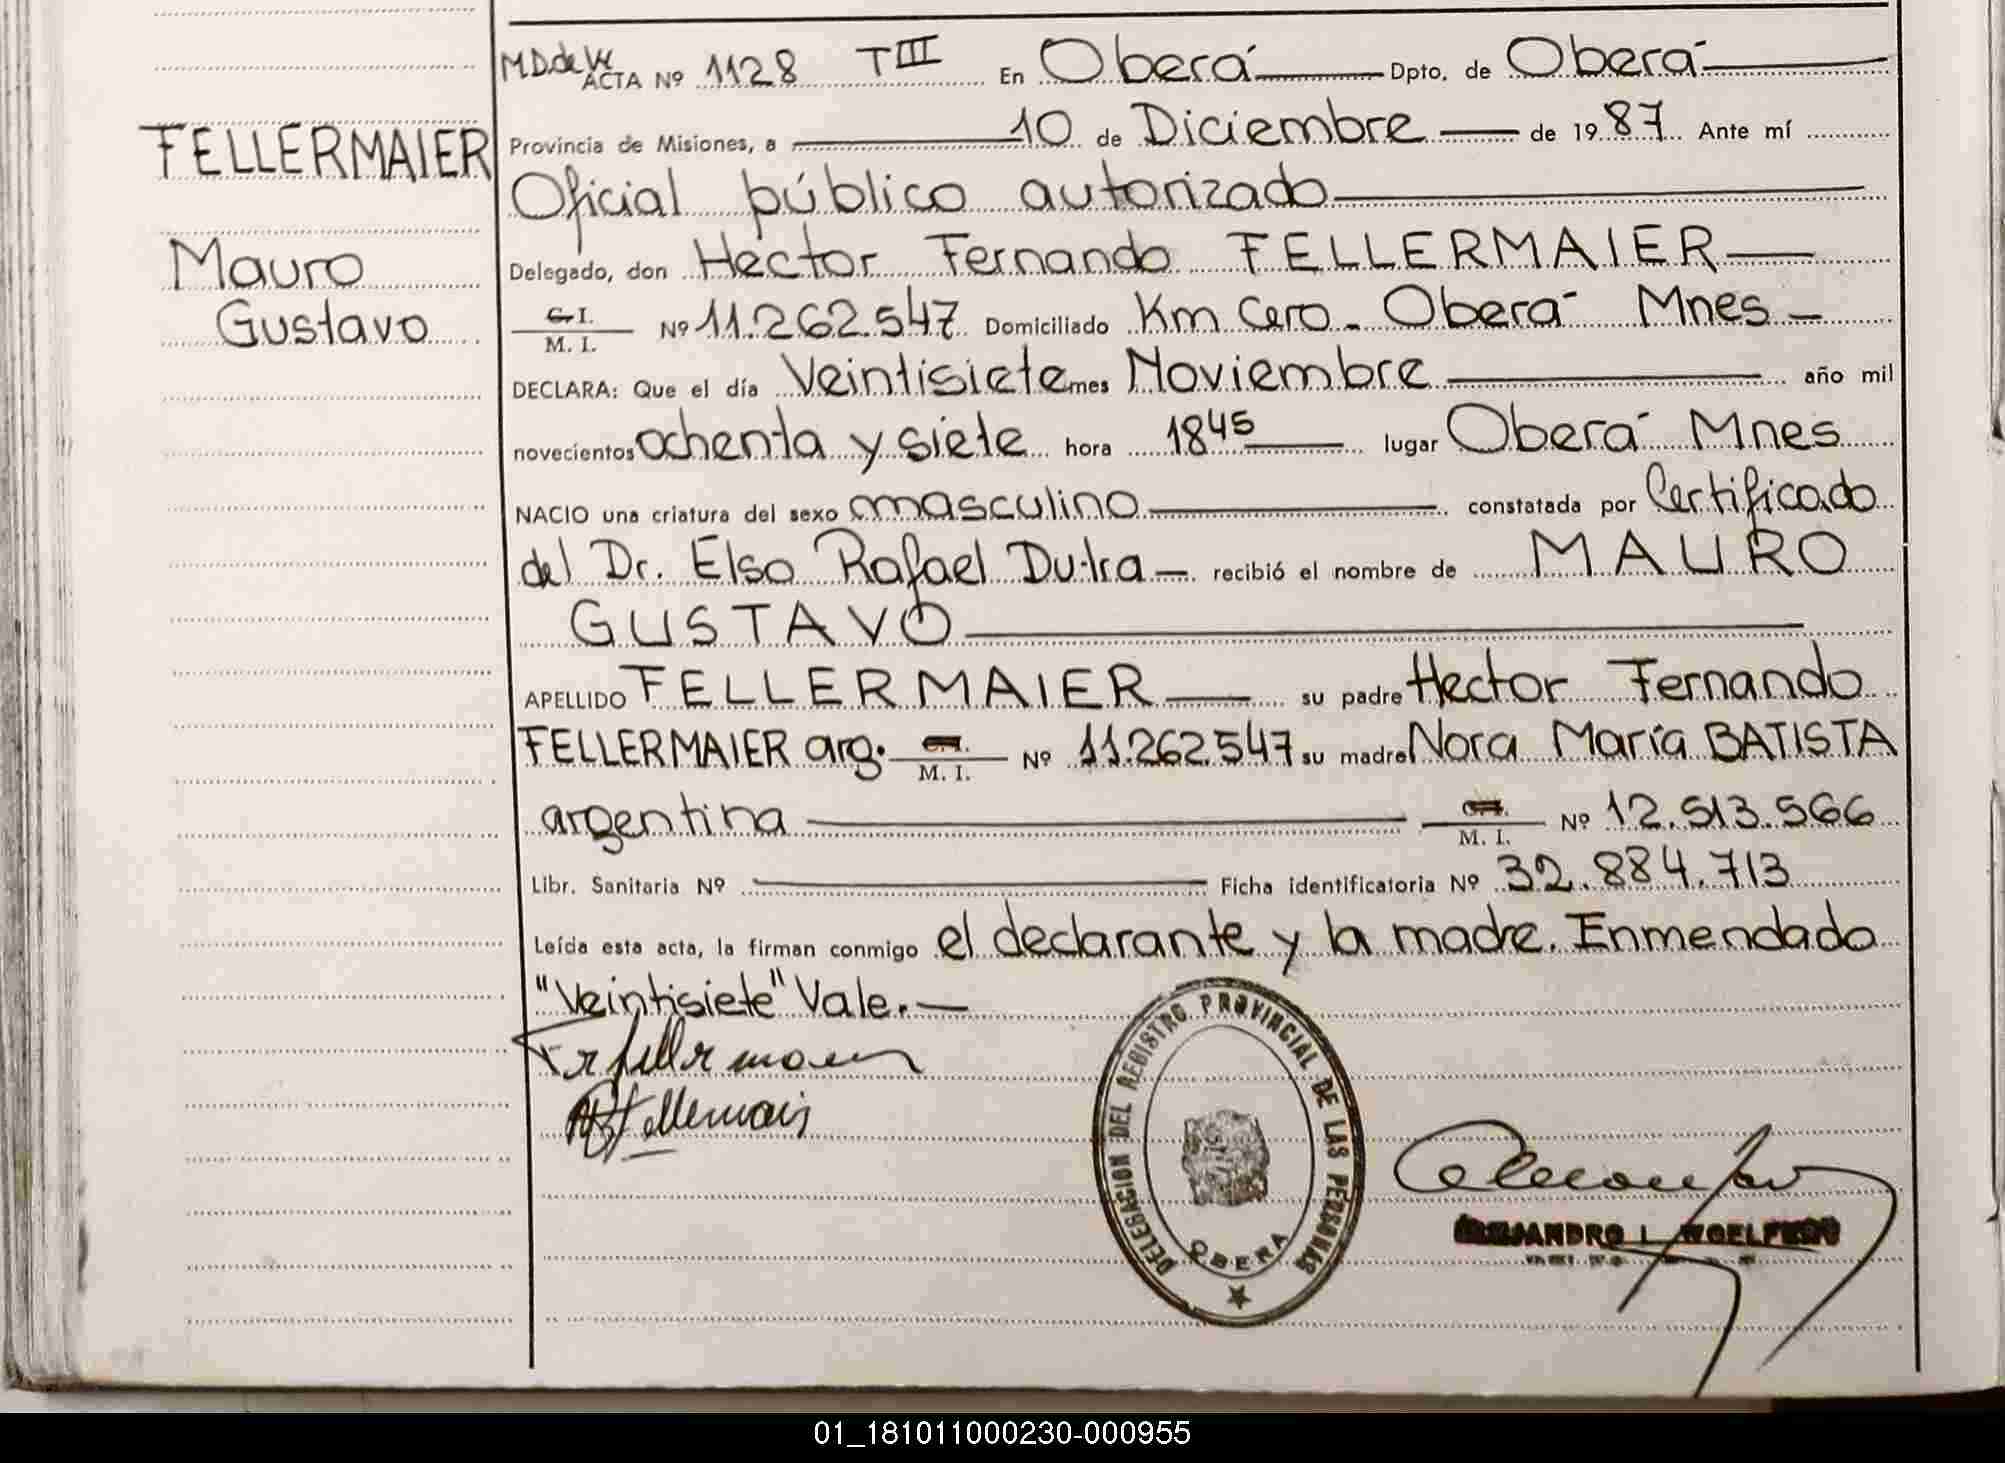 M.D.de W.
ACTA Nº 1128 T III En Oberá Dpto. de Oberá
FELLERMAIER
Provincia de Misiones, a 10 de Diciembre de 1987 Ante mí
Oficial público autorizado
Mauro
Gustavo
Delegado, don Hector Fernando FELLERMAIER
C.I. M. I. Nº 11.262.547 Domiciliado Km Cero - Oberá Mnes
DECLARA: Que el día Veintisiete mes Noviembre año mil
novecientos ochenta y siete hora 1845 lugar Oberá Mnes
NACIO una criatura del sexo masculino constatada por Certificado
del Dr. Elso Rafael Dutra recibió el nombre de MAURO
GUSTAVO
APELLIDO FELLERMAIER su padre Hector Fernando
FELLERMAIER arg. M. I. Nº 11.262.547 su madre Nora María BATISTA
argentina M. I. Nº 12.513.566
Libr. Sanitaria Nº Ficha identificatoria Nº 32.884.713
Leída esta acta, la firman conmigo el declarante y la madre. Enmendado
"Veintisiete" Vale.
DELEGACION DEL REGISTRO PROVINCIAL DE LAS PERSONAS
OBERA
01_181011000230-000955